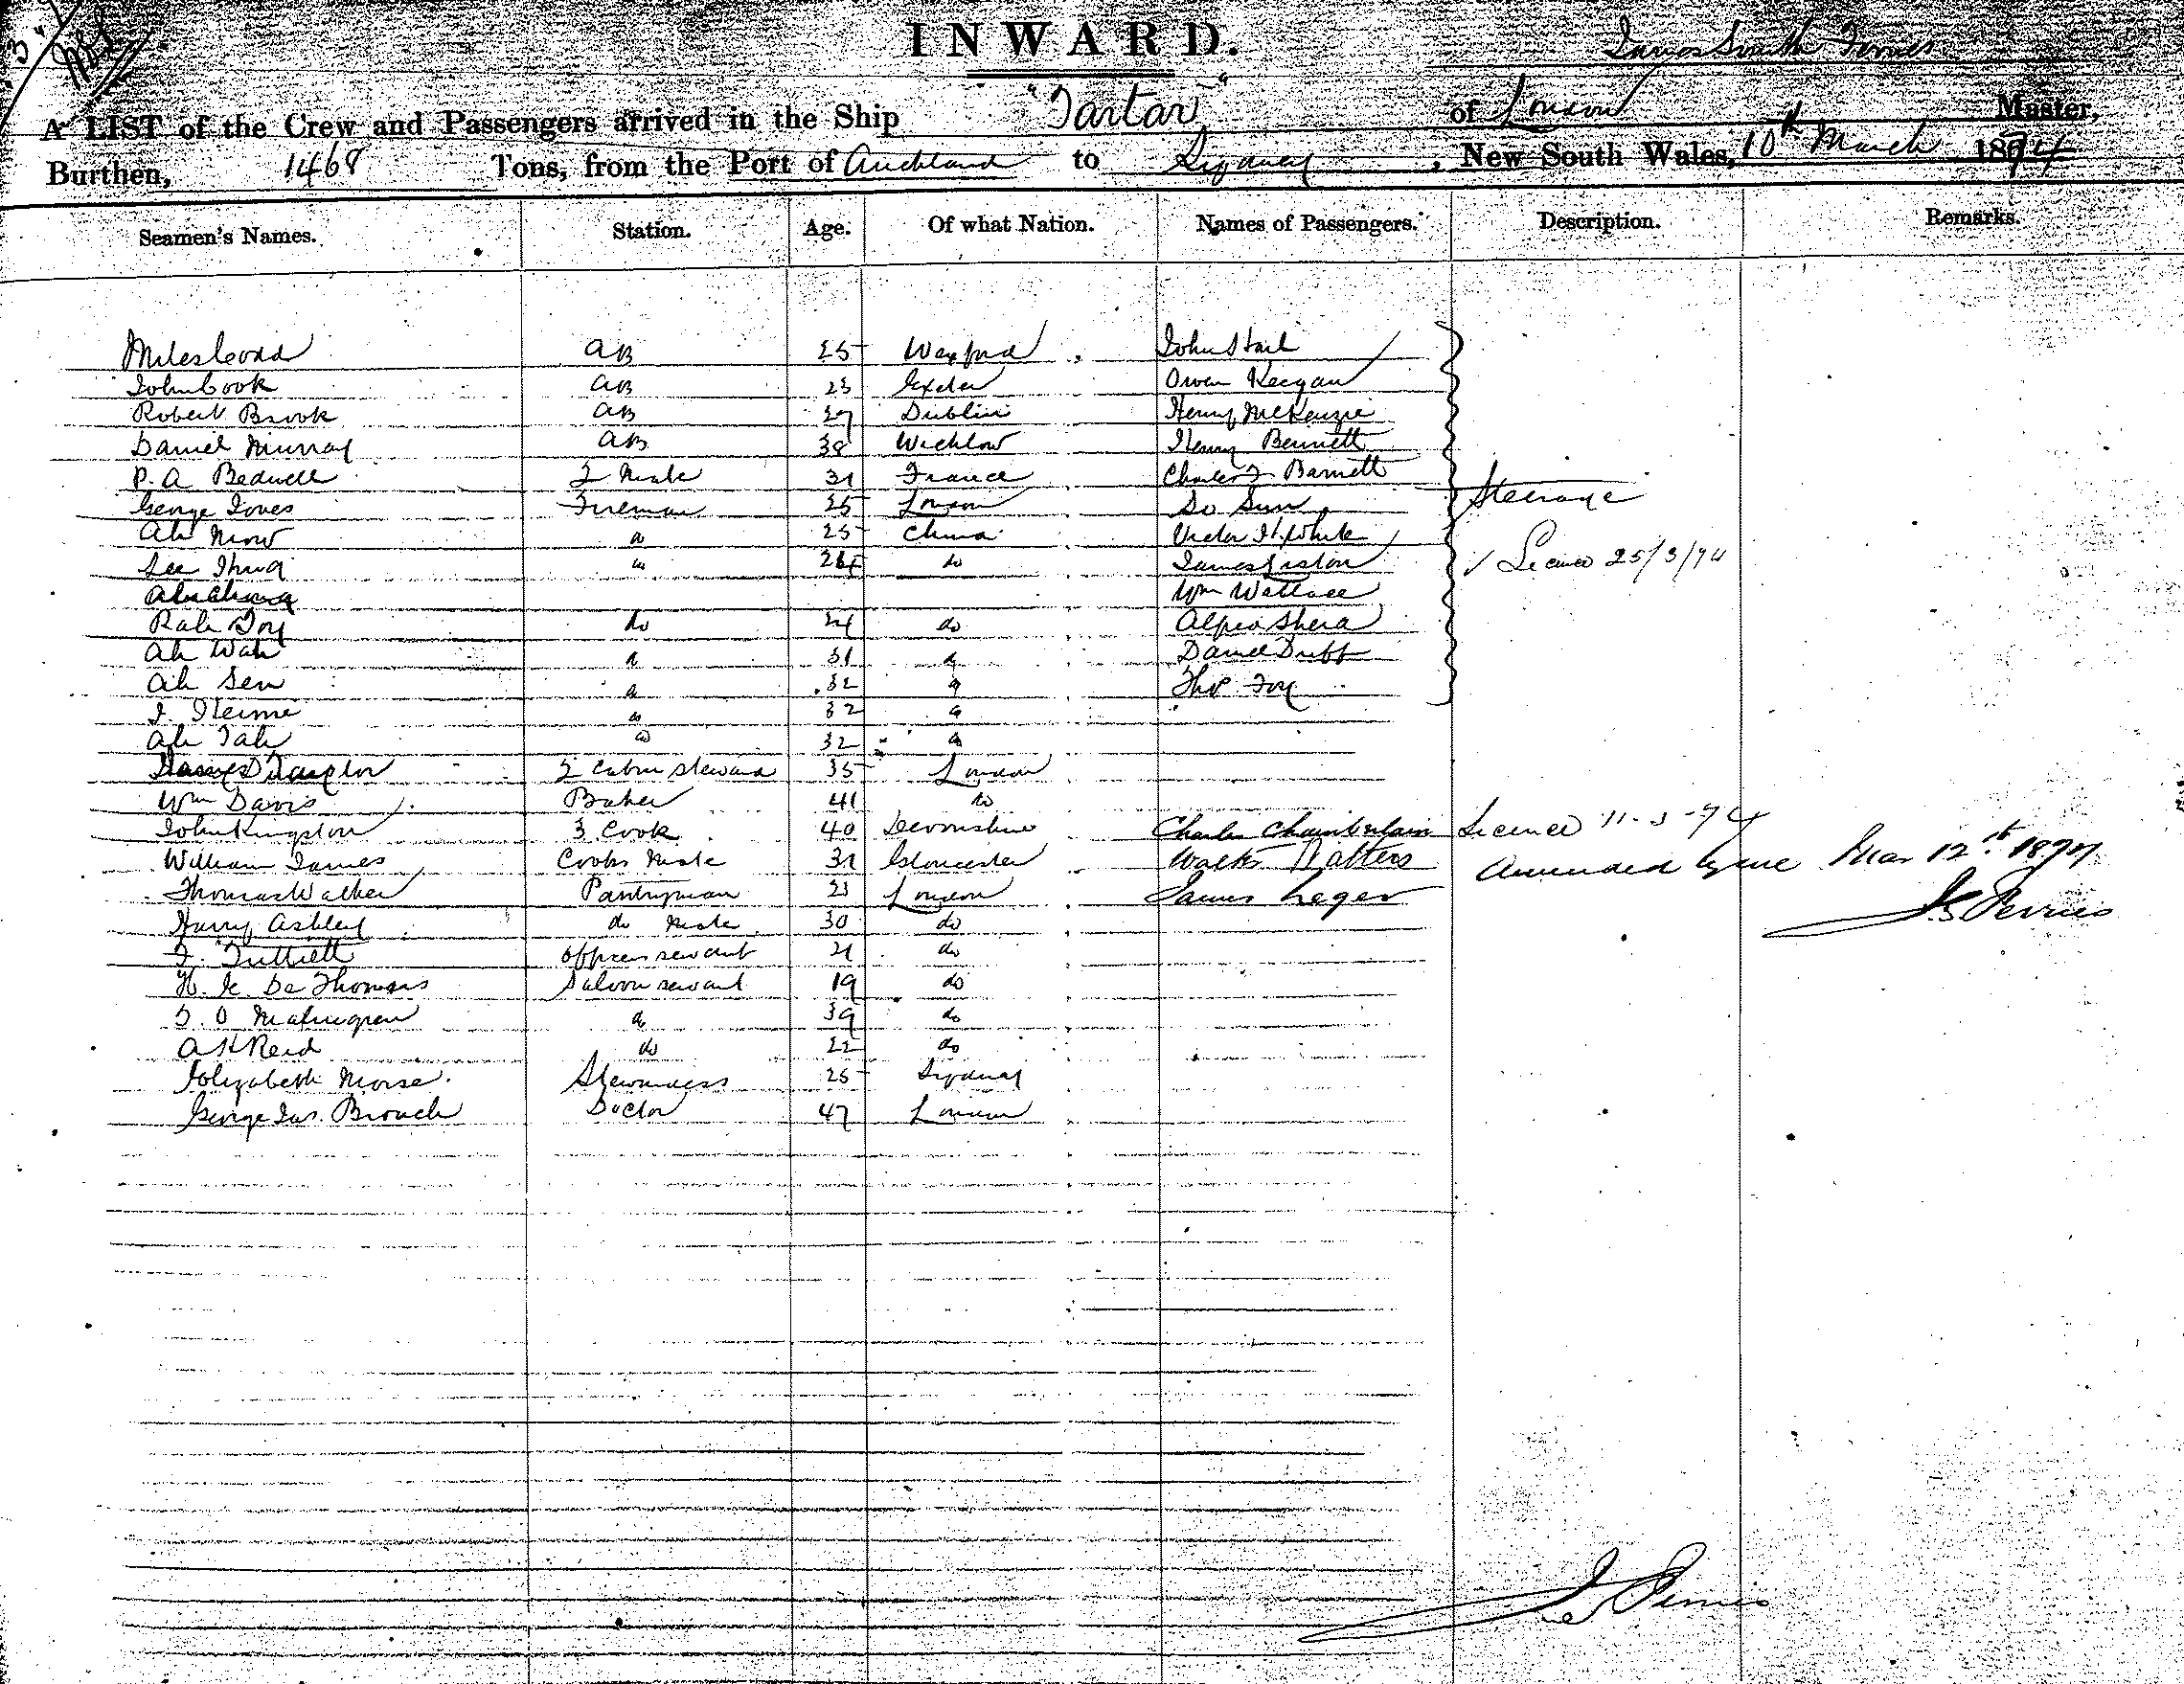 INWARD.
James Smith Ferries
A LIST of the Crew and Passengers arrived in the Ship "Tartar" of London Master,
Burthen, 1468 Tons, from the Port of Auckland to Sydney, New South Wales, 10th March 1874
Seamen's Names. Station. Age. Of what Nation. Names of Passengers. Description. Remarks.
Miles Codd AB 25 Wexford John Hail
John Cook AB 23 Exeter Owen Keegan
Robert Brook AB 27 Dublin Henry McKenzie
Daniel Murray AB 38 Wicklow Henry Bennett
P. A Bedwell 2 Mate 31 France Charles F Barnett
George Jones Fireman 25 London So Sun Steerage
Ah Mow do 25 China Victor H. White
See 24 do James Liston 25/3/74
Wm Wallace
do 24 do Shera
Ah Wah do 31 do Daniel Duff
Ah Sen do 32 do Thos Foy
do 32 do
Ah Tah do 32 do
Taylor 2 Cabin Steward 35 London
Wm Davis Baker 41 do
John Kingston 3 Cook 40 Devonshire Charles Chamberlain 11-3-74
William James Cooks Mate 31 Gloucester Walter Watters Amended Mar 12th 1874
Thomas Walker Pantryman 21 London James Leger
J S Ferries
Harry Ashley do Mate 30 do
F. Tuttiett officers servant 21 do
H. De Thomas Saloon servant 19 do
do 39 do
A H Reid do 22 do
Elizabeth Morse. Stewardess 25 Sydney
George Jas. Brouch Doctor 47 London
J S Ferries